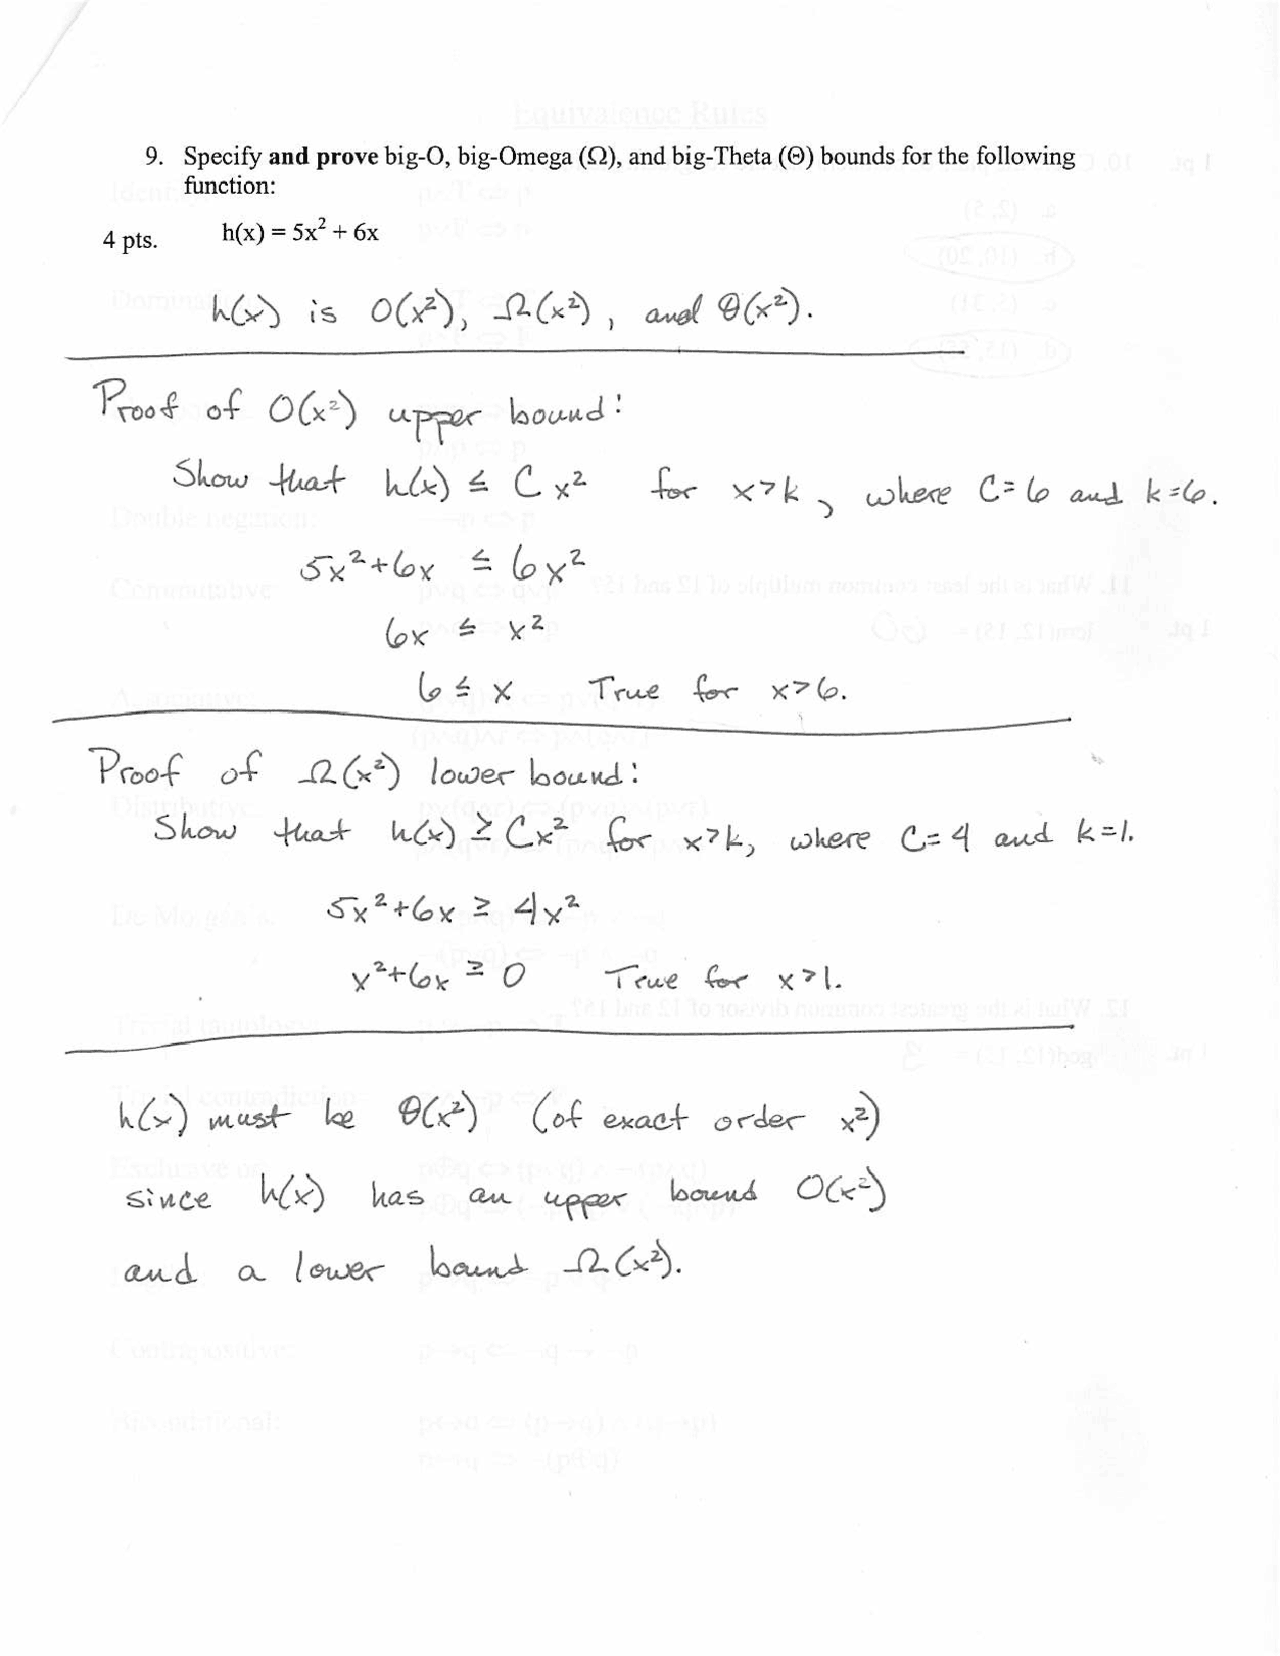 9. Specify and prove big-O, big-Omega (Ω), and big-Theta (Θ) bounds for the following
function:
4 pts. h(x) = 5x² + 6x
h(x) is O(x²), Ω(x²), and Θ(x²).
Proof of O(x²) upper bound:
Show that h(x) ≤ C x² for x>k, where C=6 and k=6.
5x²+6x ≤ 6x²
6x ≤ x²
6 ≤ x True for x>6.
Proof of Ω(x²) lower bound:
Show that h(x) ≥ Cx² for x>k, where C=4 and k=1.
5x²+6x ≥ 4x²
x²+6x ≥ 0 True for x>1.
h(x) must be Θ(x²) (of exact order x²)
since h(x) has an upper bound O(x²)
and a lower bound Ω(x²).